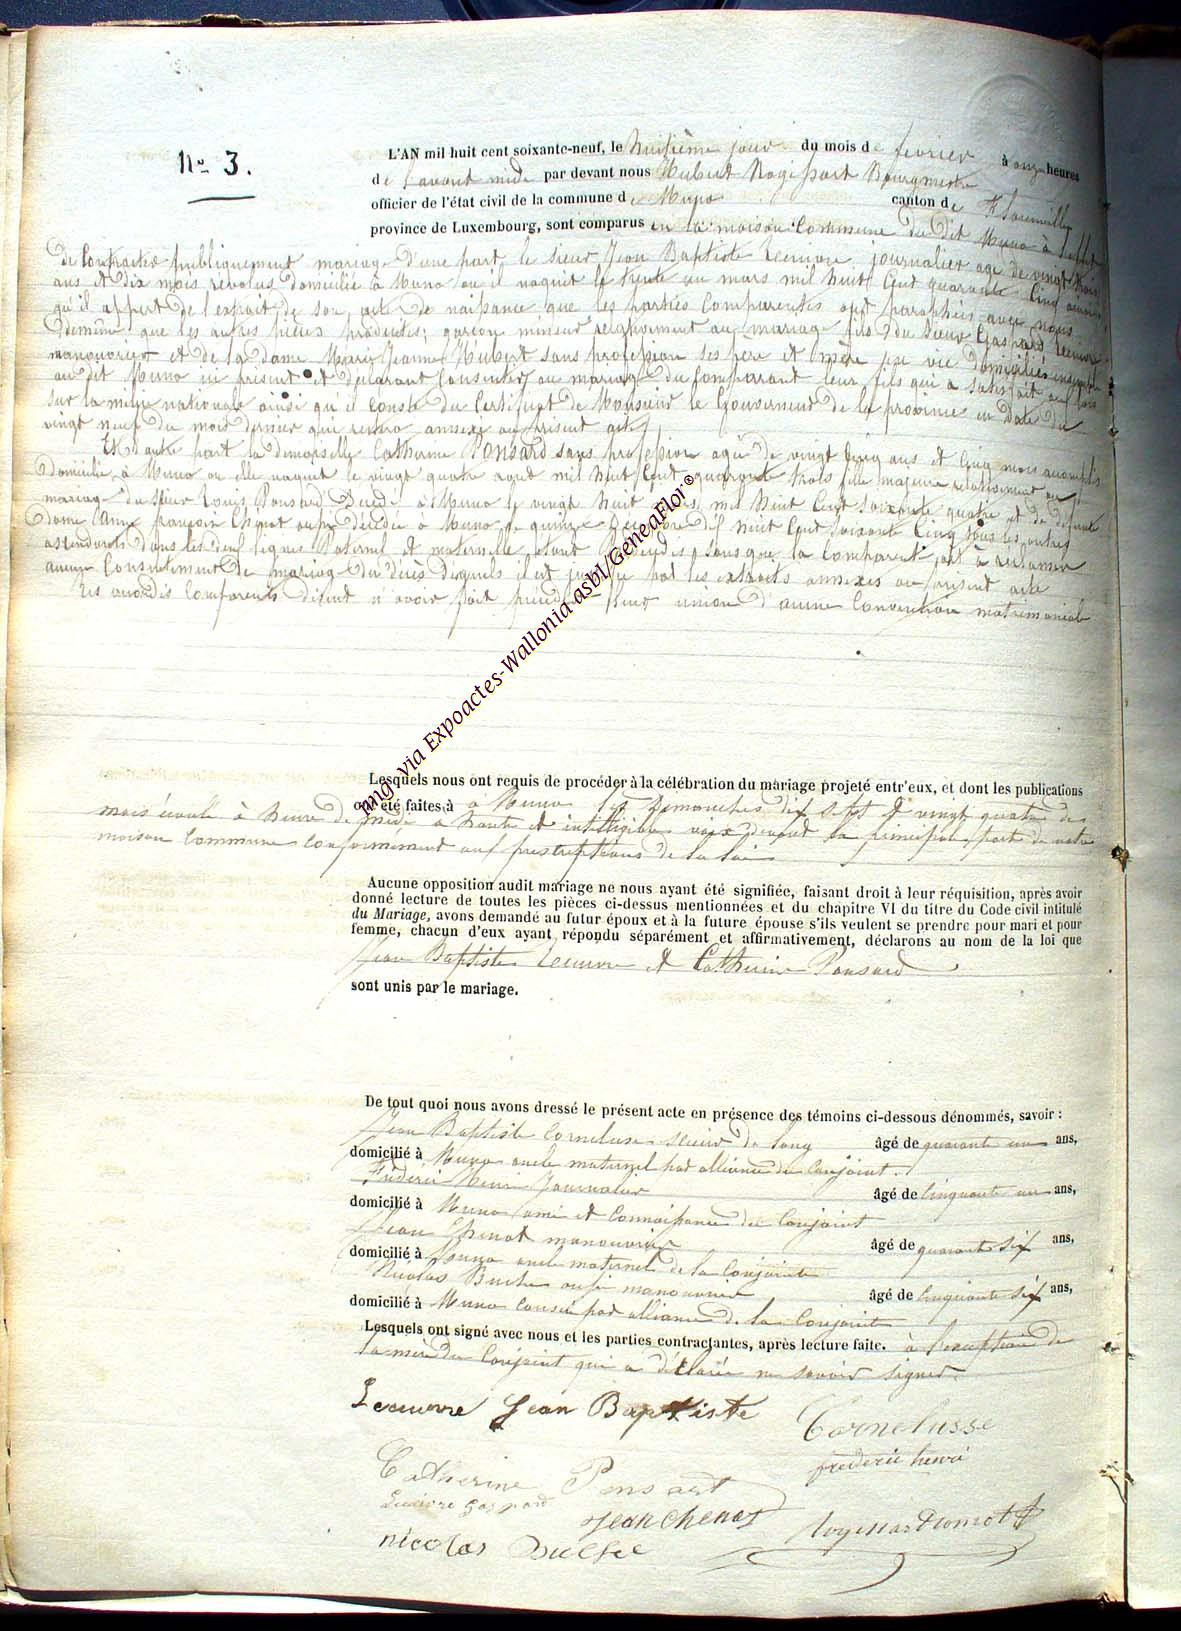 No 3.
L'AN mil huit cent soixante-neuf, le huitième jour du mois de février à onze heures
de l'avant midi par devant nous Hubert Nogissart Bourgmestre
officier de l'état civil de la commune de Muno canton de
province de Luxembourg, sont comparus en la maison Commune du dit Muno à l'effet
de Contracter publiquement mariage d'une part le sieur Jean Baptiste Lecuivre journalier age de vingt trois
ans et dix mois révolus domicilié à Muno ou il naquit le trente un mars mil huit Cent quarante Cinq ainsi
qu'il appert de l'extrait de son acte de naissance que les parties Comparentes ont paraphées avec nous
de même que les autres pièces produites; garçon mineur relativement au mariage fils du Sieur Gaspard Lecuivre
manouvrier et de la dame Marie Jeanne Hubert sans profession ses père et mère en vie domiciliés ensemble
au dit Muno ici présent et déclarant Consentir au mariage du Comparant leur fils qui a satisfait aux lois
sur la milice nationale ainsi qu'il Conste du Certificat de Monsieur le Gouverneur de la province en date du
vingt neuf du mois dernier qui restera annexé au présent acte
Et d'autre part la demoiselle Catherine Ponsard sans profession agée de vingt Cinq ans et Cinq mois accomplis
domiciliée à Muno ou elle naquit le vingt quatre aout mil huit Cent quarante trois fille majeure relativement au
mariage du Sieur Louis Ponsard Décédé à Muno le vingt huit mil huit Cent soixante quatre et de défunte
dame Anne françoise Chenot aussi décédée à Muno le quinze Décembre dix huit Cent soixante Cinq tous les autres
ascendants dans les deux lignes Paternel et maternelle étant décédés sans que la Comparente ait à réclamer
aucun Consentement de mariage du décès desquels il est justifié par les extraits annexés au présent acte
Les susdits Comparents disent n'avoir fait précéder leur union d'aucune Convention matrimoniale
Lesquels nous ont requis de procéder à la célébration du mariage projeté entr'eux, et dont les publications
ont été faites à à Muno les Dimanches dix sept et vingt quatre du
mois écoulé à heure de midi à haute et intelligible voix devant la principale porte de notre
maison Commune Conformément aux prescriptions de la loi
Aucune opposition audit mariage ne nous ayant été signifiée, faisant droit à leur réquisition, après avoir
donné lecture de toutes les pièces ci-dessus mentionnées et du chapitre VI du titre du Code civil intitulé
du Mariage, avons demandé au futur époux et à la future épouse s'ils veulent se prendre pour mari et pour
femme, chacun d'eux ayant répondu séparément et affirmativement, déclarons au nom de la loi que
Jean Baptiste Lecuivre et Catherine Ponsard
sont unis par le mariage.
De tout quoi nous avons dressé le présent acte en présence des témoins ci-dessous dénommés, savoir :
Jean Baptiste Cornelusse scieur de long âgé de quarante un ans,
domicilié à Muno oncle maternel par alliance du Conjoint.
Fréderic Henri Journalier âgé de Cinquante un ans,
domicilié à Muno ami et Connaissance du Conjoint
Jean Chenot manouvrier âgé de quarante six ans,
domicilié à Muno oncle maternel de la Conjointe
Nicolas aussi manouvrier âgé de Cinquante six ans,
domicilié à Muno Cousin par alliance de la Conjointe
Lesquels ont signé avec nous et les parties contractantes, après lecture faite. à l'exception de
la mère du Conjoint qui a déclaré ne savoir signer.
Lecuivre Jean Baptiste
Cornelusse
frederic henri
Catherine Ponsart
Lecuivre Gaspard
Jean Chenot
nicolas
img. via Expoactes-Wallonia asbl/GeneaFlor©